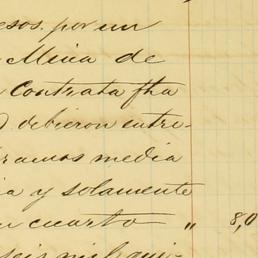 esos. por un
Mina de
Contrata fha
debieron entre-
ramos media
ia y solamente
cuarto " 8,0
seis mil qui-